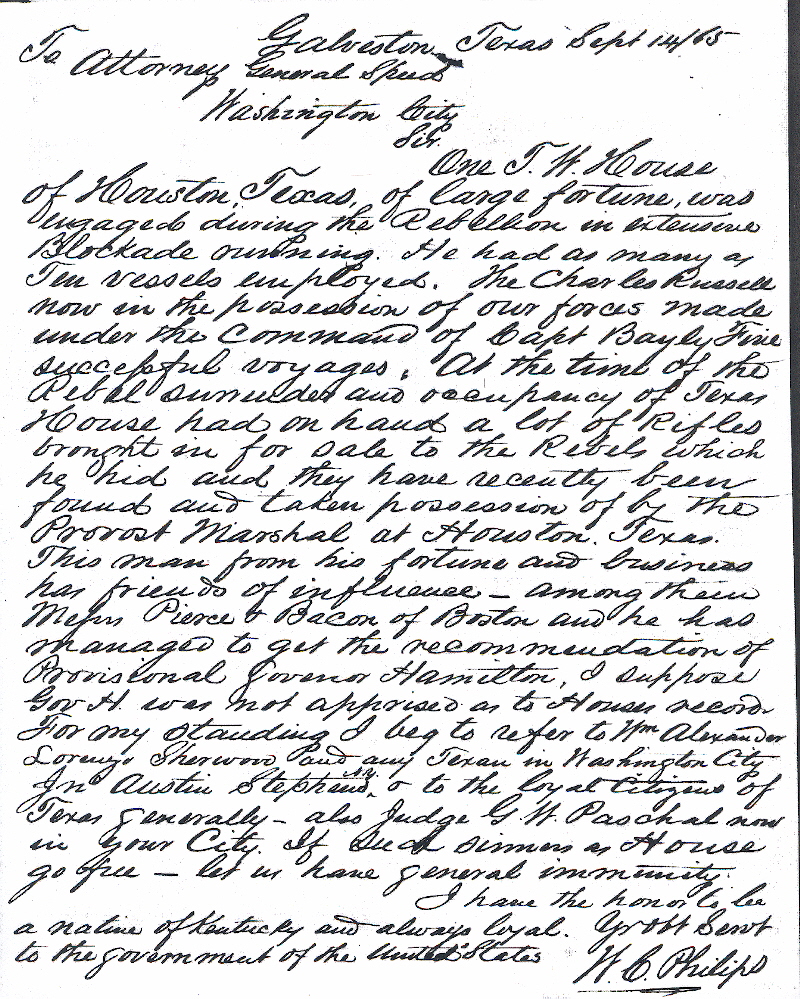 Galveston, Texas Sept 14/65
To Attorney General Speed
Washington City
Sir.
One T. W. House
of Houston, Texas, of large fortune, was
engaged during the Rebellion in extensive
Blockade running. He had as many as
Ten vessels employed. The Charles Russell
now in the possession of our forces made
under the Command of Capt Bayly Five
successful voyages. At the time of the
Rebel surrender and occupancy of Texas
House had on hand a lot of Rifles
brought in for sale to the Rebels which
he hid and they have recently been
found and taken possession of by the
Provost Marshal at Houston. Texas.
This man from his fortune and business
has friends of influence – among them
Messrs Pierce & Bacon of Boston and he has
managed to get the recommendation of
Provisional Govenor Hamilton, I suppose
Gov H. was not apprised as to Houses record.
For my standing I beg to refer to Wm Alexander
Lorenzo Sherwood and any Texan in Washington City
Jno Austin Stephens, N.Y. & to the loyal Citizens of
Texas generally – also Judge G W Paschal now
in your City. If such sinners as House
go free – let us have general immunity.
I have the honor to be
a native of Kentucky and always loyal. Yr obt Servt
to the government of the United States
W. C. Philips